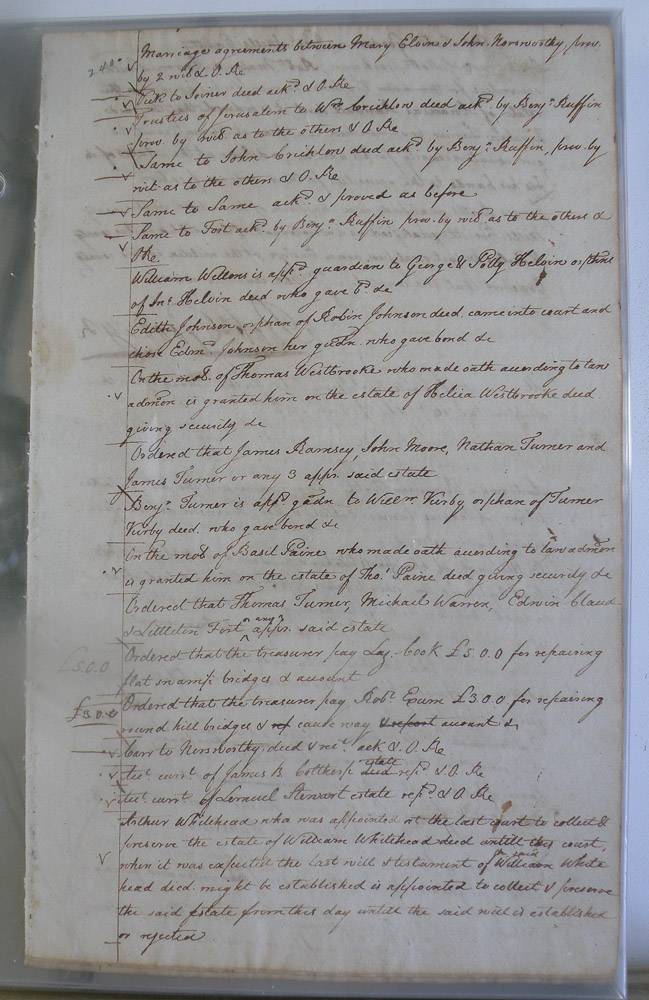 Marriage agreements between Mary Elvin & John Norsworthy prov.
by 2 witˢ & O. Re
to Joiner deed ackᵈ & O Re
Trustees of Jerusalem to Wᵐ Crichlow deed ackᵈ by Benjᵃ Ruffin
prov by witˢ as to the others & O Re
Same to John Crichlow deed ackᵈ by Benjᵃ Ruffin, prov. by
wit as to the others & O. Re
Same to Same ackᵈ & proved as before
Same to Fort ackᵈ by Benjᵃ Ruffin prov. by witˢ as to the others &
O Re.
William Wellons is appᵈ guardian to George & Polly Helvin orphans
of Jnᵒ Helvin deed who gave bᵈ &c
Edith Johnson orphan of Robin Johnson deed. came into court and
chose Edmᵈ Johnson her gudn. who gave bond &c
On the moᵗ of Thomas Westbrooke who made oath according to law
admon is granted him on the estate of Westbrooke deed
giving security &c
Ordered that James Ramsey, John Moore, Nathan Turner and
James Turner or any 3 appr. said estate
Benjᵃ Turner is appᵈ gudn. to Kirby orphan of Turner
Kirby deed. who gave bond &c
On the moᵗ of Basil Paine who made oath according to law admon
is granted him on the estate of Thoˢ Paine deed giving security &c
Ordered that Thomas Turner, Michael Warren, Edwin Claud
& Littleton Fort or any 3 appr. said estate
£5.0.0 Ordered that the treasurer pay Laz. Cook £5.0.0 for repairing
flat swamp bridges & account
£3.0.0 Ordered that the treasurer pay Robᵗ Exum £3.0.0 for repairing
round hill bridges & ref cause way & report acount &
Carr to Norsworthy deed & ack & O. Re
currᵗ of James B Colthorp deed estate & O. Re
currᵗ of Lemuel Stewart estate & O Re
Arthur Whitehead who was appointed at the last court to collect &
preserve the estate of William Whitehead deed untill this court,
when it was expected the last will & testament of the said William White
head deed. might be established is appointed to collect & preserve
the said Estate from this day untill the said will is established
or rejected